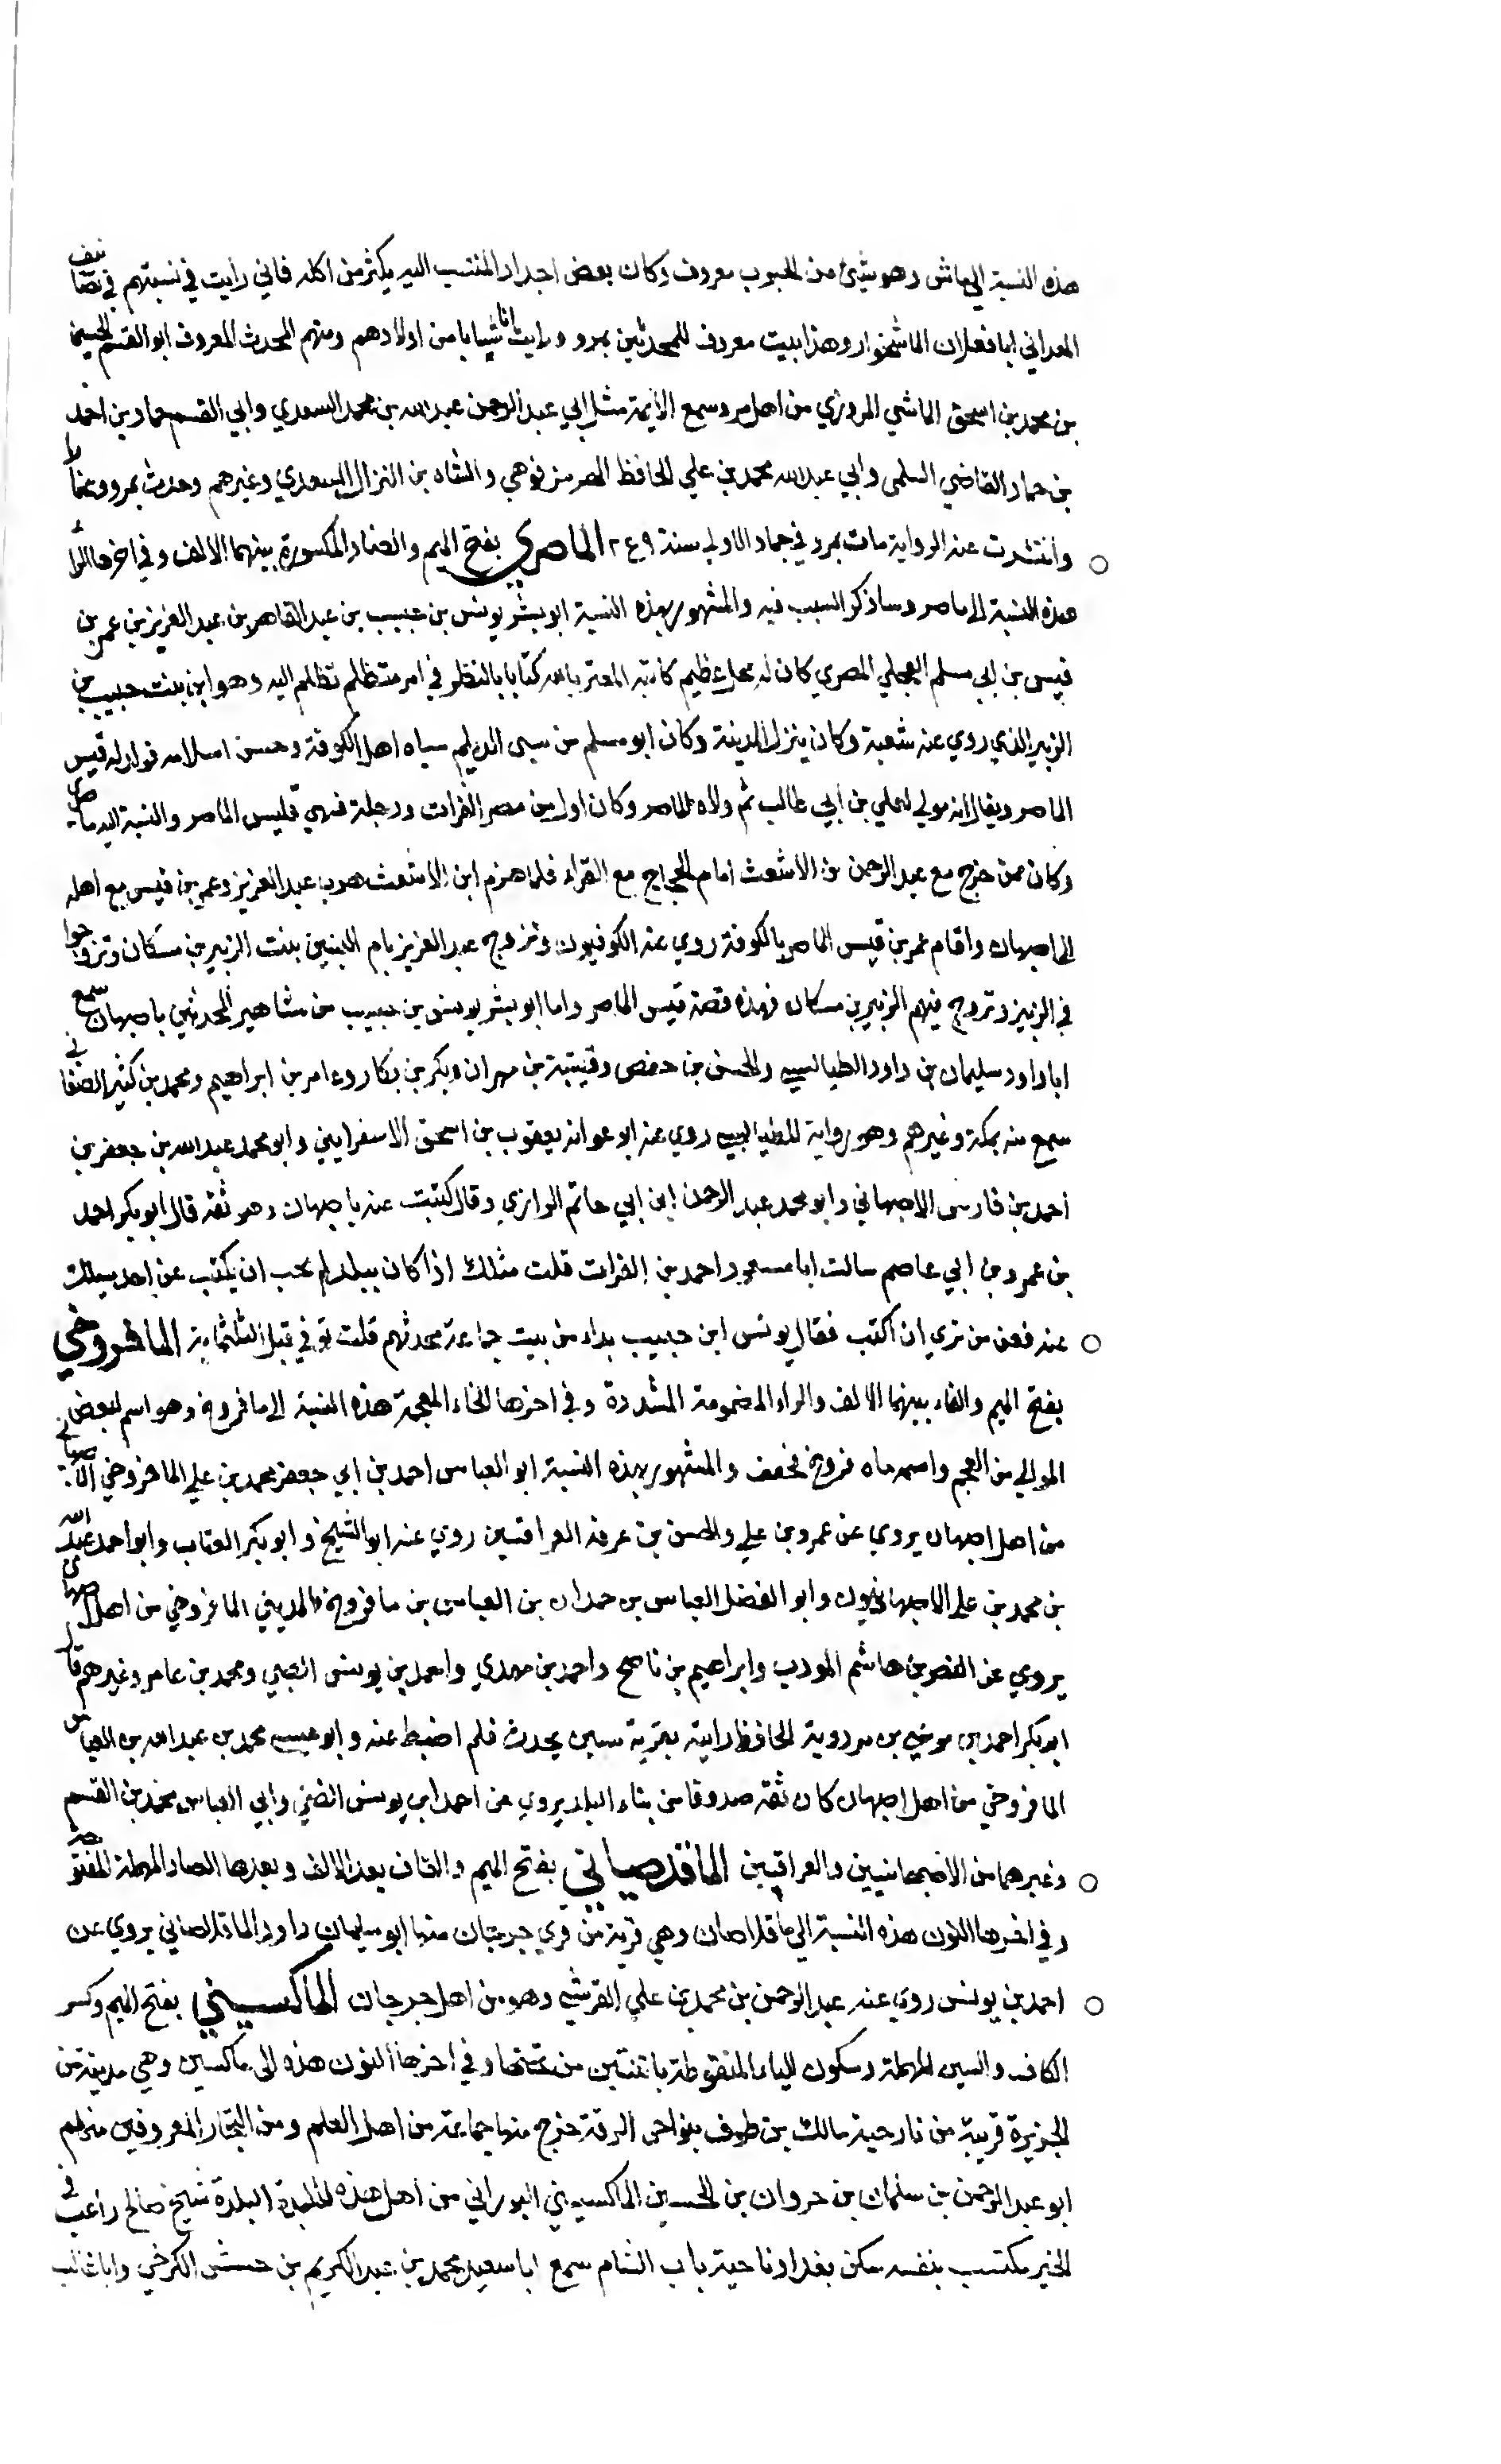 هذه النسبة الي ماش وهو شيئ من الحبوب معروف وكان بعض اجداد المنتسب اليه يكثر من اكله فاني رأيت في نسبتهم في تصانيف
المعداني ابا فعلان الماشخوار وهذا بيت معروف للمحدثين بمرو ورايت انا شيابا من اولادهم ومنهم المحدث المعروف ابو القسم الحسين
بن محمد بن اسحق الماشي المروزي من اهل مرو سمع الأيمة مثل ابي عبد الرحمن عبد الله بن محمد السعدي وابي القسم حماد بن احمد
بن حماد القاضي السلمي وابي عبد الله محمد بن علي الحافظ الهرمزفوهي والشاه بن النزال السعدي وغيرهم وحدث بمرو وبخارا
وانتشرت عنه الرواية مات بمرو في جماد الاولي سنة ٣٤٩ الماصري بفتح الميم والصاد المكسورة بينهما الالف وفي اخرها الرا
هذه النسبة الي ماصر وساذكر السبب فيه والمشهور بهذه النسبة ابو بشر يونس بن حبيب بن عبد القاهر بن عبد العزيز بن عمر بن
قيس بن ابي مسلم العجلي المصري كان له محل عظيم كاتبه المعتز بالله كتابا بالنظر في امر متظلم تظلم اليه وهو ابن بنت حبيب بن
الزبير الذي روي عنه شعبة وكان ينزل المدينة وكان ابو مسلم من سبى الديلم سباه اهل الكوفة وحسن اسلامه فولد له قيس
الماصر ويقال انه مولي لعلي بن ابي طالب ثم ولاه الماصر وكان اول من مصر الفرات ودجلة فسمي قيس الماصر والنسبة اليه ماصري
وكان ممن خرج مع عبد الرحمن بن الاشعث امام الحجاج مع القراء فلما هزم ابن الاشعث هرب عبد العزيز وعمر بن قيس مع اهله
الي اصبهان واقام عمر بن قيس الماصر بالكوفة روي عنه الكوفيون وتزوج عبد العزيز بام البنين بنت الزبير بن مسكان وتزوجوا
في الزبير وتزوج فيهم الزبير بن مسكان فهذه قصة قيس الماصر واما ابو بشر يونس بن حبيب من مشاهير المحدثين باصبهان سمع
ابا داود سليمان بن داود الطيالسي والحسن بن حفص وقتيبة بن مهران وبكر بن بكار وعامر بن ابراهيم ومحمد بن كثير الصنعاني
سمع منه بمكة وغيرهم وهو رواية للطيالسي روي عنه ابو عوانه يعقوب بن اسحق الاسفرايني وابو محمد عبد الله بن جعفر بن
احمد بن فارس الاصبهاني وابو محمد عبد الرحمن ابن ابي حاتم الرازي وقال كتبت عنه باصبهان وهو ثقة قال ابو بكر احمد
بن عمرو بن ابي عاصم سالت ابا مسعود احمد بن الفرات قلت مثلك اذا كان ببلد لم يحب ان يكتب عن احد يسلك
عنه فعن من تري ان اكتب فقال يونس ابن حبيب بداء من بيت جماعة محدثهم قلت توفي قبل الثلثماية المافروخي
بفتح الميم والفاء بينهما الالف والراء المضمومة المشددة وفي اخرها الخاء المعجمة هذه النسبة الي مافروخ وهو اسم لبعض
الموالي من العجم واصله ماه فروخ فخفف والمشهور بهذه النسبة ابو العباس احمد بن ابي جعفر محمد بن علي المافروخي الاصبهاني
من اهل اصبهان يروي عن عمرو بن علي والحسن بن عرفه العراقيين روي عنه ابو الشيخ و ابو بكر القتاب وابو احمد عبيد الله
بن محمد بن علي الاصبهانيون وابو الفضل العباس بن حمدان بن العباس بن مافروخ المديني المافروخي من اهل اصبهان
يروي عن النضر بن هاشم المودب وابراهيم بن ناصح واحمد بن مهدي واحمد بن يونس الضبي ومحمد بن عامر وغيرهم قال
ابو بكر احمد بن موسي بن مردوية الحافظ رايته بقرية سين يحدث فلم اضبط عنه و ابو عيسي محمد بن عبد الله بن العباس
المافروخي من اهل اصبهان كان ثقة صدوقا من بناء البلد يروي عن احمد ابن يونس الضبي وابي العباس محمد بن القسم
وغيرهما من الاصبهانيين والعراقيين الماقلاصاني بفتح الميم والقاف بعد الالف وبعدها الصاد المهملة المفتوحة
وفي اخرها النون هذه النسبة الي ماقلاصان وهي قرية من قري جرجان منها ابو سليمان داود الماقلاصاني يروي عن
احمد بن يونس روي عنه عبد الرحمن بن محمد بن علي القرشي وهو من اهل جرجان الماكسيني بفتح الميم وكسر
الكاف والسين المهملة وسكون الياء المنقوطة باثنتين من تحتها وفي اخرها النون هذه الى ماكسين وهي مدينة من
الجزيرة قريبة من نارحية مالك بن طوف بنواحي الرقة خرج منها جماعة من اهل العلم ومن التجار المعروفين منهم
ابو عبد الرحمن بن سلمان بن حروان بن الحسين الماكسيني البوراني من اهل هذه البلدة شيخ صالح راغب في
الخير مكتسب بنفسه سكن بغداد ناحية باب الشام سمع ابا سعيد محمد بن عبد الكريم بن حشيش الكرخي وابا غالب